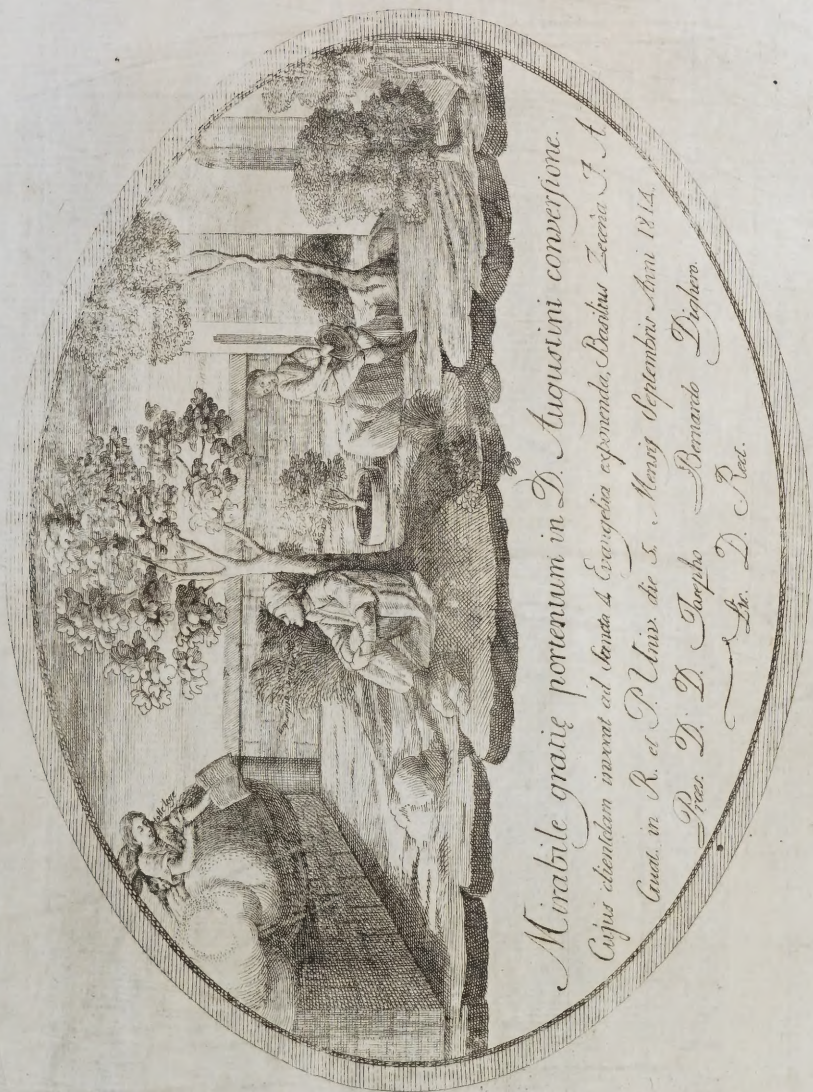 Tolle, lege
Mirabile gratię portentum in D. Augustini conversione.
Cujus clientelam inverat ad Sancta 4 Evangelia exponenda, Basilius Zeceña J. A
Guat. in R. et P. Univ. die 5. Mensis Septembris Anni 1814.
Præs. D. D. Josepho Bernardo Dighero.
Lic. D. Rect.